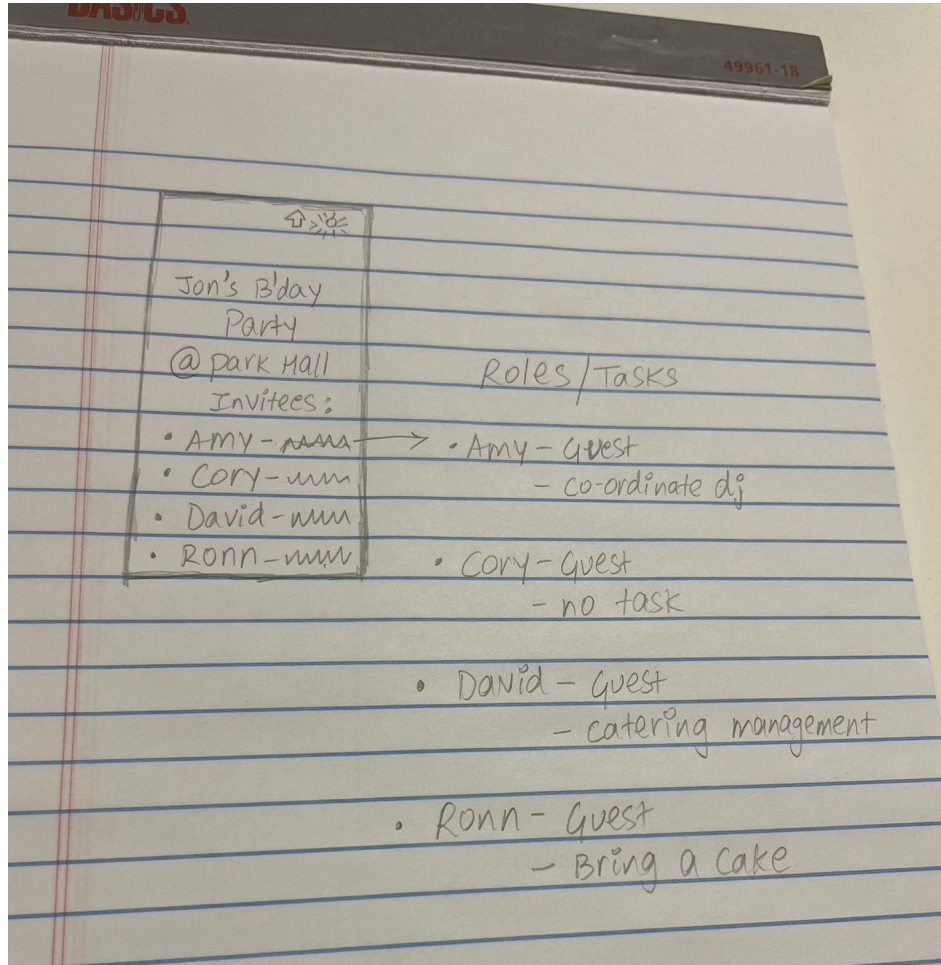 BASICS
49961-18
Jon's B'day
Party
@ Park Hall
Invitees:
• Amy -
• Cory -
• David -
• Ronn -
Roles/Tasks
• Amy - Guest
- co-ordinate dj
• Cory - Guest
- no task
• David - Guest
- catering management
• Ronn - Guest
- Bring a cake